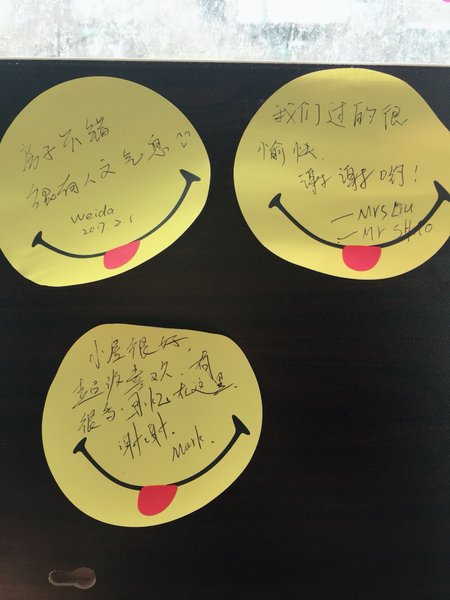 房子不错
很有人文气息
Weida
2017.2.1
我们过的很
愉快.
谢谢哟!
—Mrs Liu
—Mr SHAO
小屋很好,
喜欢,有
很多回忆在这里.
谢谢.
Mark.